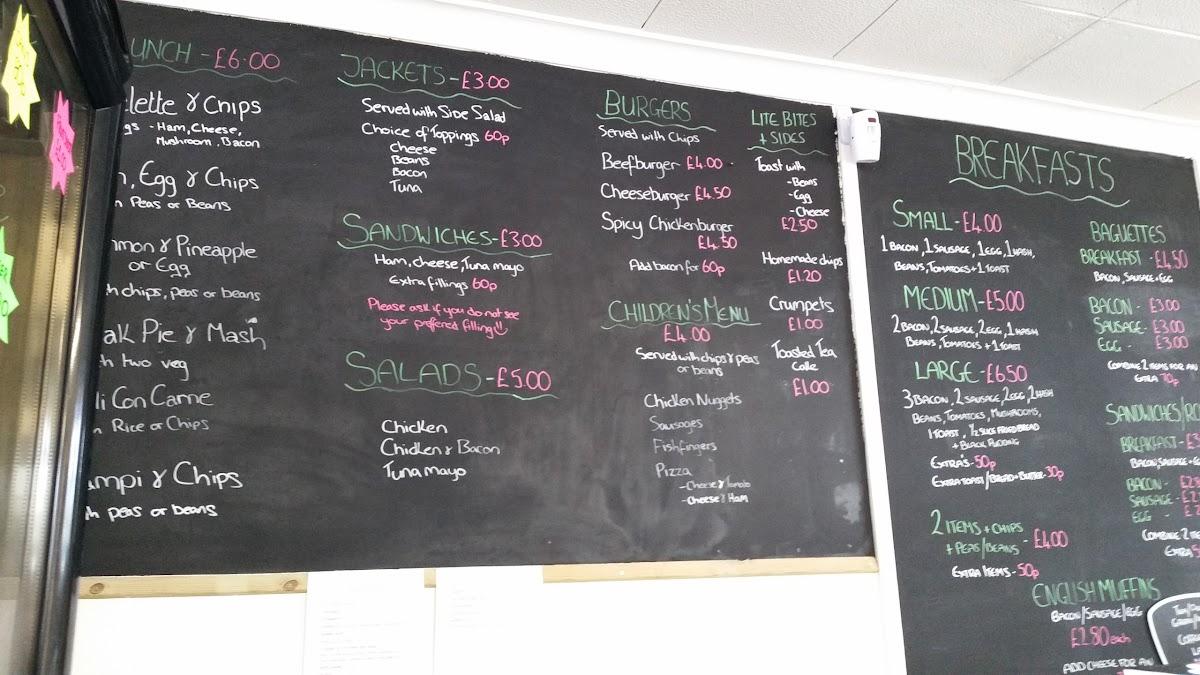 UNCH - £6.00
lette & Chips
gs - Ham, Cheese,
Mushroom, Bacon
, Egg & Chips
Peas or Beans
mon & Pineapple
or Egg
h chips, peas or beans
ak Pie & Mash
h two veg
li Con Carne
Rice or Chips
mpi & Chips
h peas or beans
JACKETS - £3.00
Served with Side Salad
Choice of Toppings 60p
Cheese
Beans
Bacon
Tuna
SANDWICHES - £3.00
Ham, cheese, Tuna mayo
Extra fillings 60p
Please ask if you do not see
your prefered filling!!
SALADS - £5.00
Chicken
Chicken & Bacon
Tuna mayo
BURGERS
Served with Chips
Beefburger £4.00
Cheeseburger £4.50
Spicy Chickenburger
£4.50
Add bacon for 60p
CHILDREN'S MENU
£4.00
Served with chips & peas
or beans
Chicken Nuggets
Sausages
Fishfingers
Pizza
- Cheese & Tomato
- Cheese & Ham
LITE BITES
+ SIDES
Toast with
- Beans
- Egg
- Cheese
£2.50
Homemade chips
£1.20
Crumpets
£1.00
Toasted Tea
Cake
£1.00
BREAKFASTS
SMALL - £4.00
1 BACON, 1 SAUSAGE, 1 EGG, 1 HASH,
BEANS, TOMATOES + 1 TOAST
MEDIUM - £5.00
2 BACON, 2 SAUSAGE, 2 EGG, 1 HASH
BEANS, TOMATOES + 1 TOAST
LARGE - £6.50
3 BACON, 2 SAUSAGE, 2 EGG, 2 HASH
BEANS, TOMATOES, MUSHROOMS,
1 TOAST, 1/2 SLICE FRIED BREAD
+ BLACK PUDDING
EXTRA'S - 50p
EXTRA TOAST/BREAD + BUTTER - 30p
2 ITEMS + CHIPS
+ PEAS/BEANS - £4.00
EXTRA ITEMS - 50p
BAGUETTES
BREAKFAST - £4.50
BACON, SAUSAGE + EGG
BACON - £3.00
SAUSAGE - £3.00
EGG - £3.00
COMBINE 2 ITEMS FOR AN
EXTRA 70p
SANDWICHES/RO
BREAKFAST - £3
BACON, SAUSAGE + E
BACON - £2
SAUSAGE - £2
EGG - £2
COMBINE 2 ITE
EXTRA
ENGLISH MUFFINS
BACON/SAUSAGE/EGG
£2.80 each
ADD CHEESE FOR AN